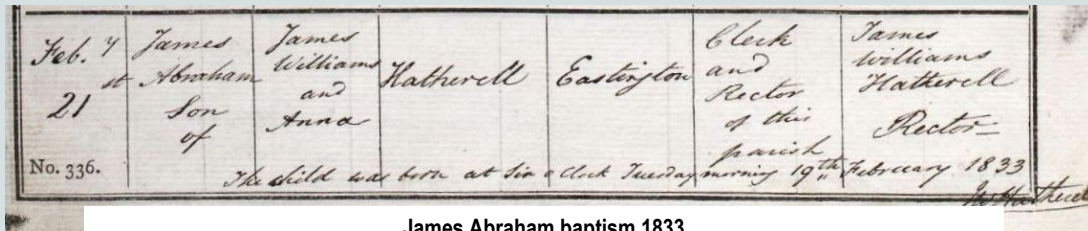 Feb. y
st
21
No. 336.
James
Abraham
Son
of
James
Williams
and
Anna
Hatherell
Eastington
Clerk
and
Rector
of this
parish
James
Williams
Hatherell
Rector
The child was born at Six o Clock Tuesday morning 19th February 1833
JW Hatherell
James Abraham baptism 1833